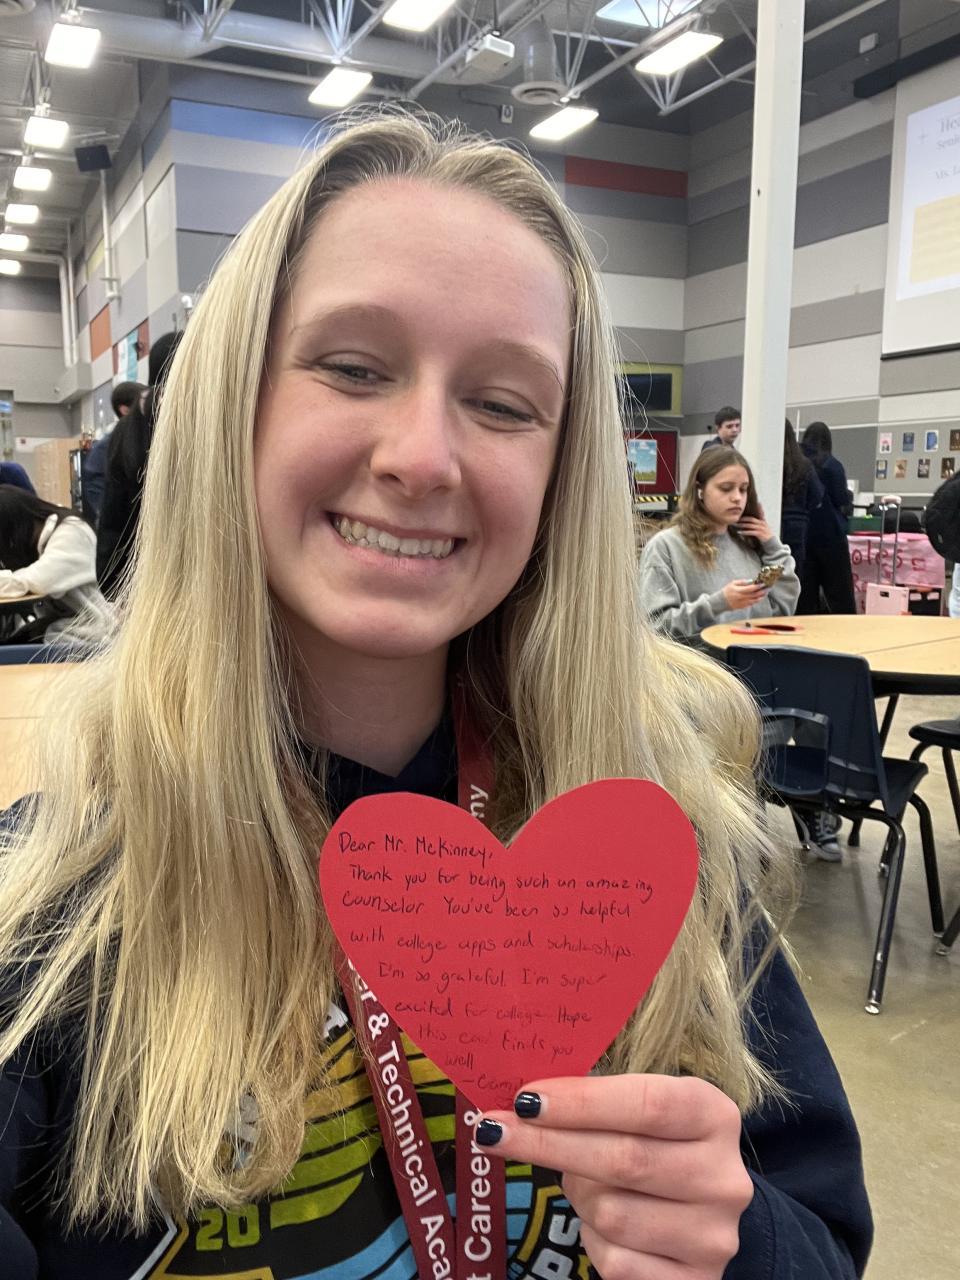 Dear Mr. McKinney,
Thank you for being such an amazing
counselor. You've been so helpful
with college apps and scholarships.
I'm so grateful. I'm super
excited for college. Hope
this card finds you
well
er & Technical Aca
t Career &
ny
20
Hea
Seni
Ms.